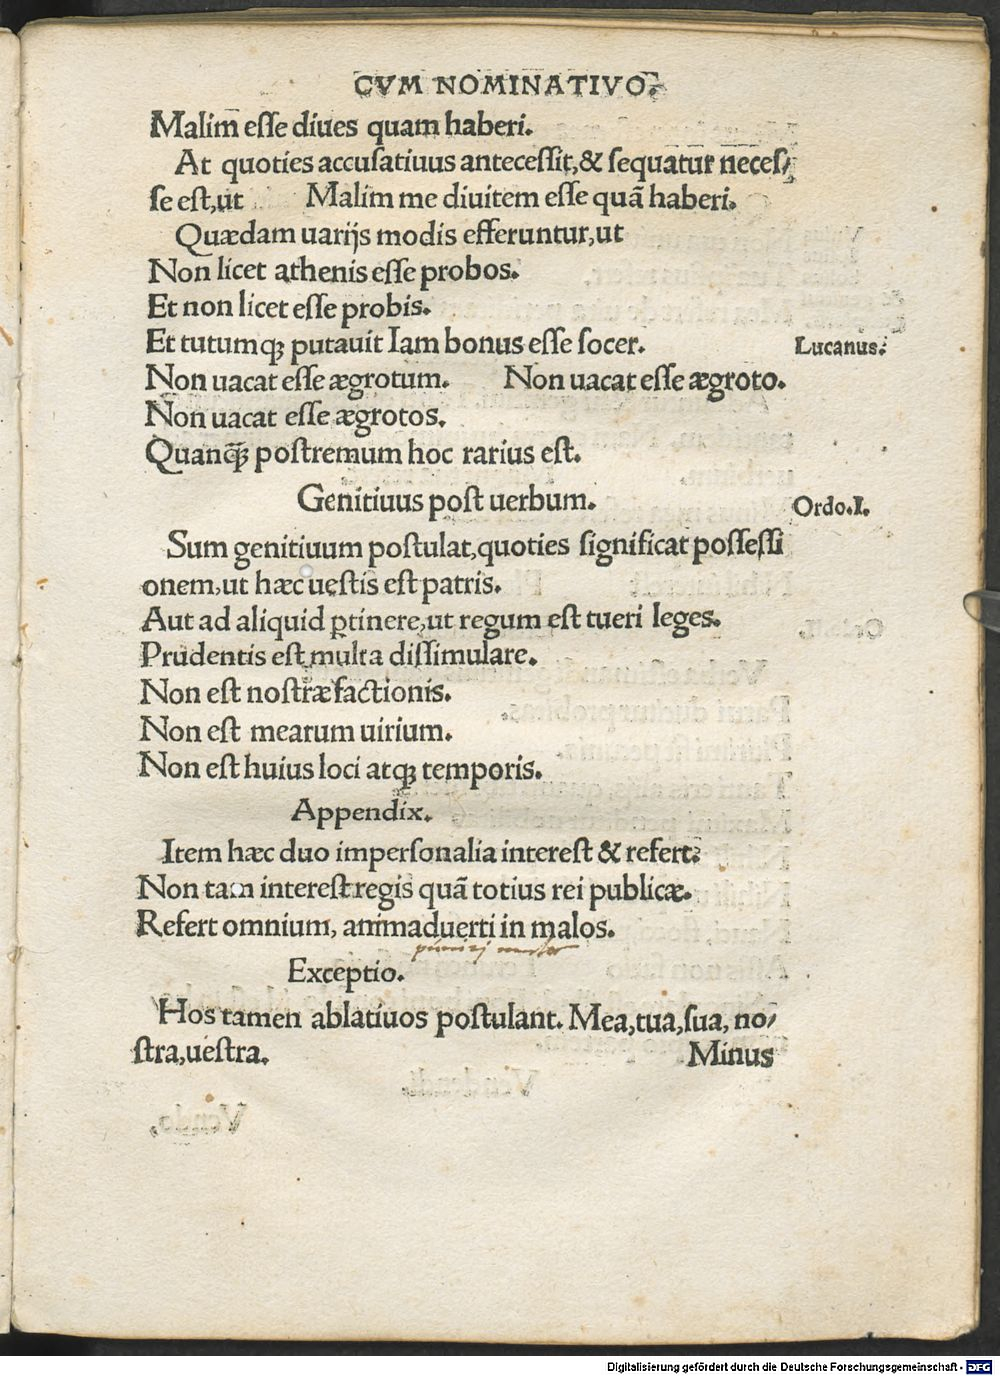 CVM NOMINATIVO.
Malim̄ esse diues quam haberi.
At quoties accusatiuus antecessit, & sequatur neces/
se est, ut Malim me diuitem esse quã haberi.
Quædam uarijs modis efferuntur, ut
Non licet athenis esse probos.
Et non licet esse probis.
Et tutumq; putauit Iam bonus esse socer.
Lucanus.
Non uacat esse ægrotum. Non uacat esse ægroto.
Non uacat esse ægrotos.
Quanq̃; postremum hoc rarius est.
Genitiuus post uerbum.
Ordo.I.
Sum genitiuum postulat, quoties significat possessi
onem, ut hæc uestis est patris.
Aut ad aliquid ꝑtinere, ut regum est tueri leges.
Prudentis est multa dissimulare.
Non est nostræ factionis.
Non est mearum uirium.
Non est huius loci atq; temporis.
Appendix.
Item hæc duo impersonalia interest & refert.
Non tam interest regis quã totius rei publicæ.
Refert omnium, animaduerti in malos.
Exceptio.
Hos tamen ablatiuos postulant. Mea, tua, sua, no/
stra, uestra. Minus
Digitalisierung gefördert durch die Deutsche Forschungsgemeinschaft - DFG